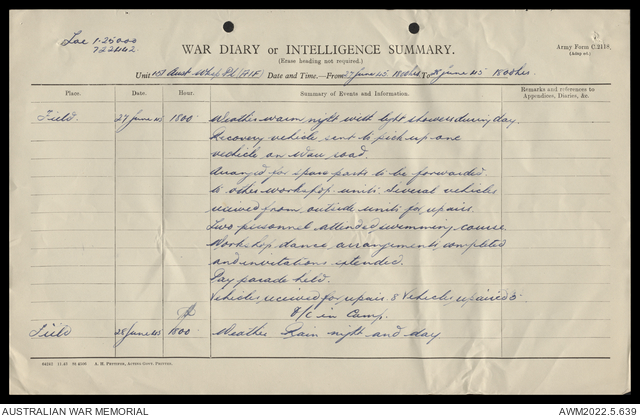 Loc 1-25000
722442
WAR DIARY or INTELLIGENCE SUMMARY.
(Erase heading not required.)
Army Form C.2118.
(Adapted.)
Unit 151 Aust. Wksp Pl (AIF) Date and Time—From 27 June 45 1800hrs To 28 June 45 1800hrs.
Place. Date. Hour. Summary of Events and Information. Remarks and references to Appendices, Diaries, &c.
Field. 27 June 45 1800. Weather warm night with light showers during day.
Recovery vehicle sent to pick up one
vehicle on Wau road.
Arranged for spare parts to be forwarded
to other workshop units. Several vehicles
received from outside units for repairs.
Two personnel attended swimming course
Workshop dance arrangements completed
and invitations extended.
Pay parade held.
Vehicles received for repair 8 Vehicles repaired 5.
O/C in Camp.
Field 28 June 45 1800. Weather Rain night and day.
A. H. PETTIFER, ACTING GOVT. PRINTER.
AUSTRALIAN WAR MEMORIAL
AWM2022.5.639